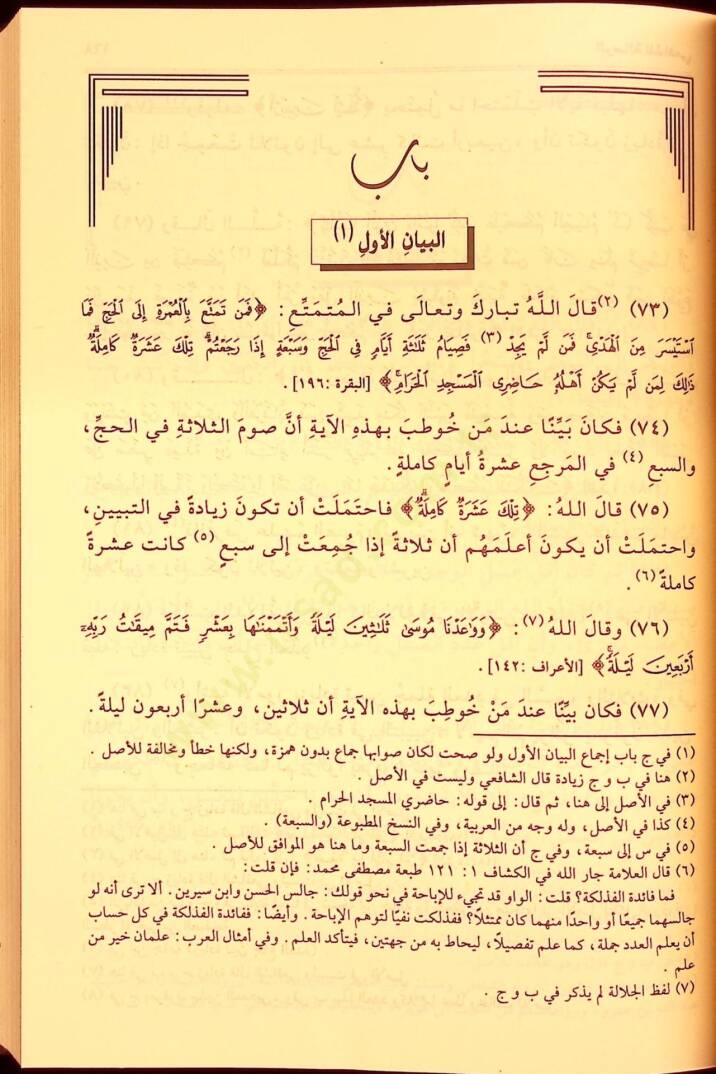 باب
البيانِ الأولِ (١)
(٧٣) (٢)قالَ اللَّهُ تباركَ وتعالَى في المتمَتِّعِ: ﴿فَمَن تَمَتَّعَ بِالْعُمْرَةِ إِلَى الْحَجِّ فَمَا
اسْتَيْسَرَ مِنَ الْهَدْيِ فَمَن لَّمْ يَجِدْ (٣) فَصِيَامُ ثَلَاثَةِ أَيَّامٍ فِي الْحَجِّ وَسَبْعَةٍ إِذَا رَجَعْتُمْ تِلْكَ عَشَرَةٌ كَامِلَةٌ
ذَلِكَ لِمَن لَّمْ يَكُنْ أَهْلُهُ حَاضِرِي الْمَسْجِدِ الْحَرَامِ﴾ [البقرة :١٩٦].
(٧٤) فكانَ بَيِّنًا عندَ مَن خُوطبَ بهذهِ الآيةِ أنَّ صومَ الثلاثةِ في الحجِّ،
والسبعِ (٤) في المَرجِعِ عشرةُ أيامٍ كاملةٍ.
(٧٥) قالَ اللهُ: ﴿تِلْكَ عَشَرَةٌ كَامِلَةٌ﴾ فاحتمَلَتْ أن تكونَ زيادةً في التبيينِ،
واحتمَلَتْ أن يكونَ أعلَمَهُم أن ثلاثةً إذا جُمِعَتْ إلى سبعٍ (٥) كانت عشرةً
كاملةً (٦).
(٧٦) وقالَ اللهُ (٧): ﴿وَوَاعَدْنَا مُوسَى ثَلَاثِينَ لَيْلَةً وَأَتْمَمْنَاهَا بِعَشْرٍ فَتَمَّ مِيقَاتُ رَبِّهِ
أَرْبَعِينَ لَيْلَةً﴾ [الأعراف :١٤٢].
(٧٧) فكان بيِّنًا عندَ مَنْ خُوطِبَ بهذه الآيةِ أن ثلاثين، وعشرًا أربعون ليلةً.
(١) في ج باب إجماع البيان الأول ولو صحت لكان صوابها جماع بدون همزة، ولكنها خطأ ومخالفة للأصل.
(٢) هنا في ب و ج زيادة قال الشافعي وليست في الأصل.
(٣) في الأصل إلى هنا، ثم قال: إلى قوله: حاضري المسجد الحرام.
(٤) كذا في الأصل، وله وجه من العربية، وفي النسخ المطبوعة (والسبعة).
(٥) في س إلى سبعة، وفي ج أن الثلاثة إذا جمعت السبعة وما هنا هو الموافق للأصل.
(٦) قال العلامة جار الله في الكشاف ١: ١٢١ طبعة مصطفى محمد: فإن قلت:
فما فائدة الفذلكة؟ قلت: الواو قد تجيء للإباحة في نحو قولك: جالس الحسن وابن سيرين. ألا ترى أنه لو
جالسهما جميعًا أو واحدًا منهما كان ممتثلًا؟ ففذلكت نفيًا لتوهم الإباحة. وأيضًا: ففائدة الفذلكة في كل حساب
أن يعلم العدد جملة، كما علم تفصيلًا، ليحاط به من جهتين، فيتأكد العلم. وفي أمثال العرب: علمان خير من
علم.
(٧) لفظ الجلالة لم يذكر في ب و ج.